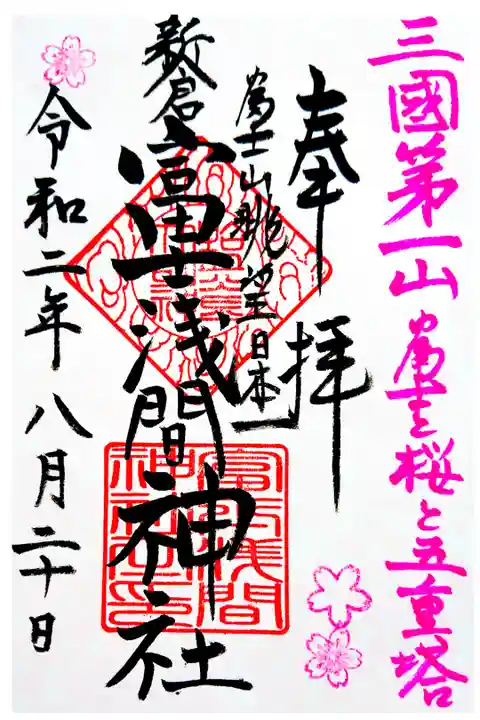 三國第一山 富士桜と五重塔
奉拝
富士山眺望日本一
新倉富士浅間神社
令和二年八月二十日